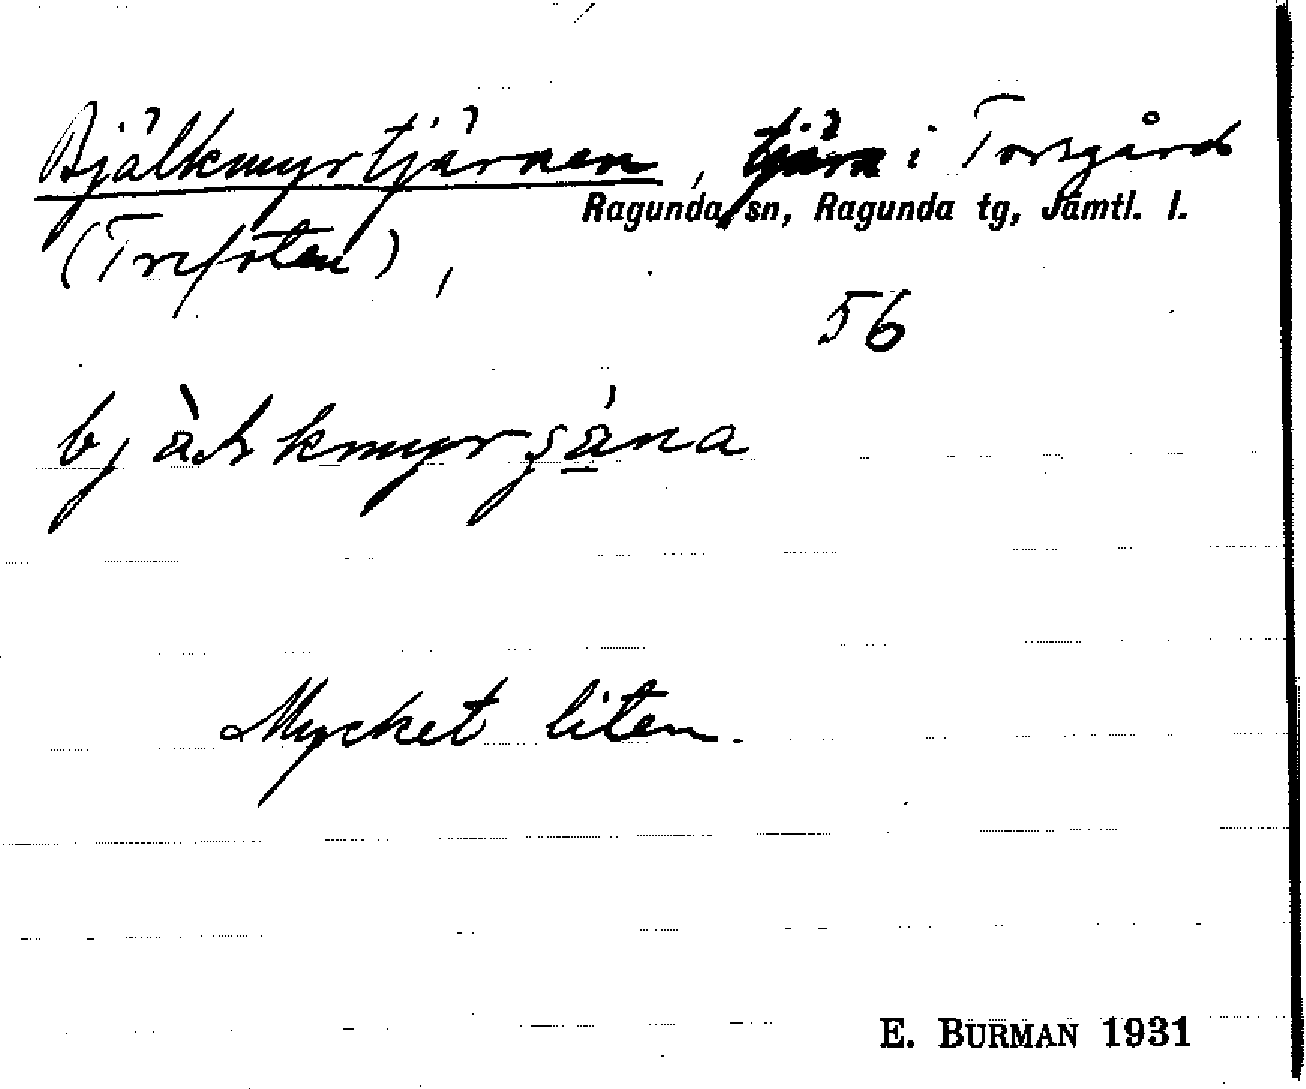 Bjälkmyrtjärnen, tjärn i Torsgård
Ragunda sn, Ragunda tg, Jämtl. l.
(Trefoten),
56
Mycket liten.
E. BURMAN 1931